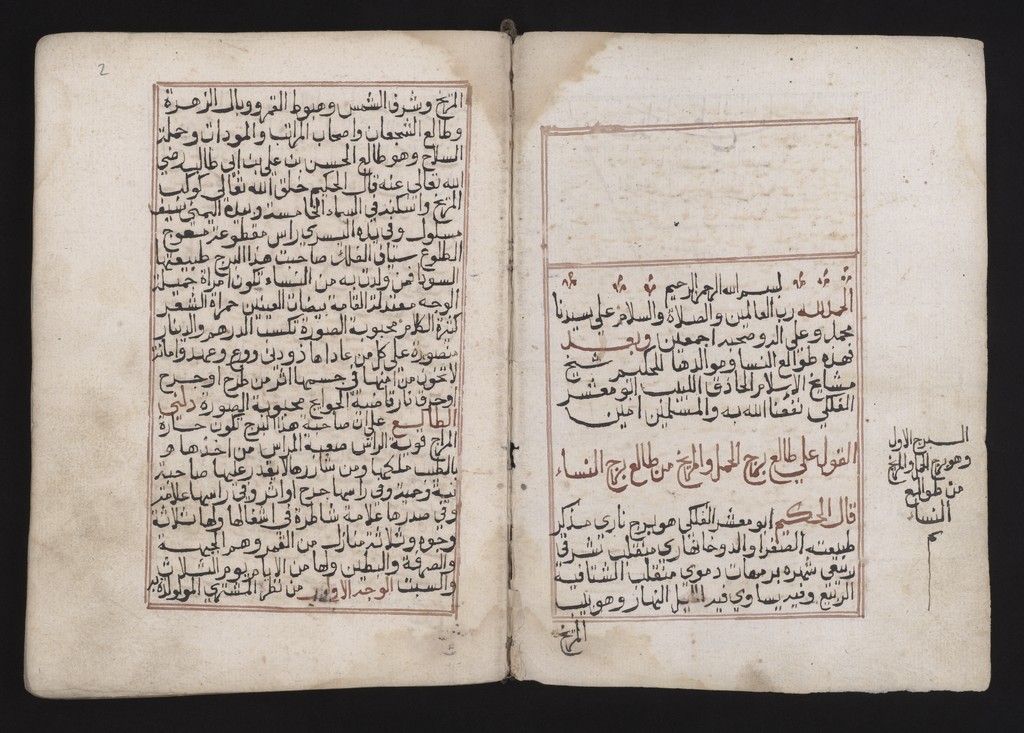 بسم الله الرحمن الرحيم
الحمد لله رب العالمين والصلاة والسلام على سيدنا
محمد وعلى اله وصحبه اجمعين وبعد
فهذه طوالع النسا وموالدها للحكيم شيخ
مشايخ الاسلام الحاذق اللبيب ابو معشر
الفلكي نفعنا الله به والمسلمين امين
القول على طالع برج الحمل والمريخ من طالع برج النساء
قال الحكيم ابو معشر الفلكي هو برج ناري مذكر
طبيعته الصفرا والدوخا نهاري منقلب شرقي
ربيعي شهره برمهات دموي منقلب الشتا فيه
الربيع وفيه يساوي فيه الليل النهار وهو بيت
المريخ
البرج الاول
وهو برج الحمل والمريخ
من طوالع
النساء
2
المريخ وشرف الشمس وهبوط القمر ووبال الزهرة
وطالع الشجعان واصحاب المراتب والمودات وحملة
السلاح وهو طالع الحسن بن علي بن ابي طالب رضي
الله تعالى عنه قال الحكيم خلق الله تعالى كوكب
المريخ واسكنه في السماء الخامسة وبيده اليمنى سيف
مسلول وفي يده اليسرى راس مقطوعة معوج
الطلوع سياف الفلك صاحبت هذا البرج طبيعتها
السودا فمن ولدت به من النساء تكون امراة جميلة
الوجه معتدلة القامة بيضات العينين حمراة الشعر
كثيرة الكلام محبوبة الصورة تكسب الدرهم والدينار
منصورة على كل من عاداها ذو دين وورع وعهد وامانة
لا تخون من امنها في جسمها اثر من طرح او جرح
وحرق نار قاضية الحوايج محبوبة الصورة دلني
الطالع على ان صاحبة هذا البرج تكون حارة
المزاج قوية الراس صعبة المراس من اخذها و
بالطيب ملكها ومن شاررها لا يقدر عليها صاحبة
نية وحمية وفي راسها جرح او اثر وفي راسها علامة
وفي صدرها علامة شاطرة في اشغالها ولها ثلاثة
وجوه وثلاثة منازل من القمر وهم الجبهة
والصرفة والبطين ولها من الايام يوم الثلاث
والسبت الوجه الاول من نظر المشتري المولودة به